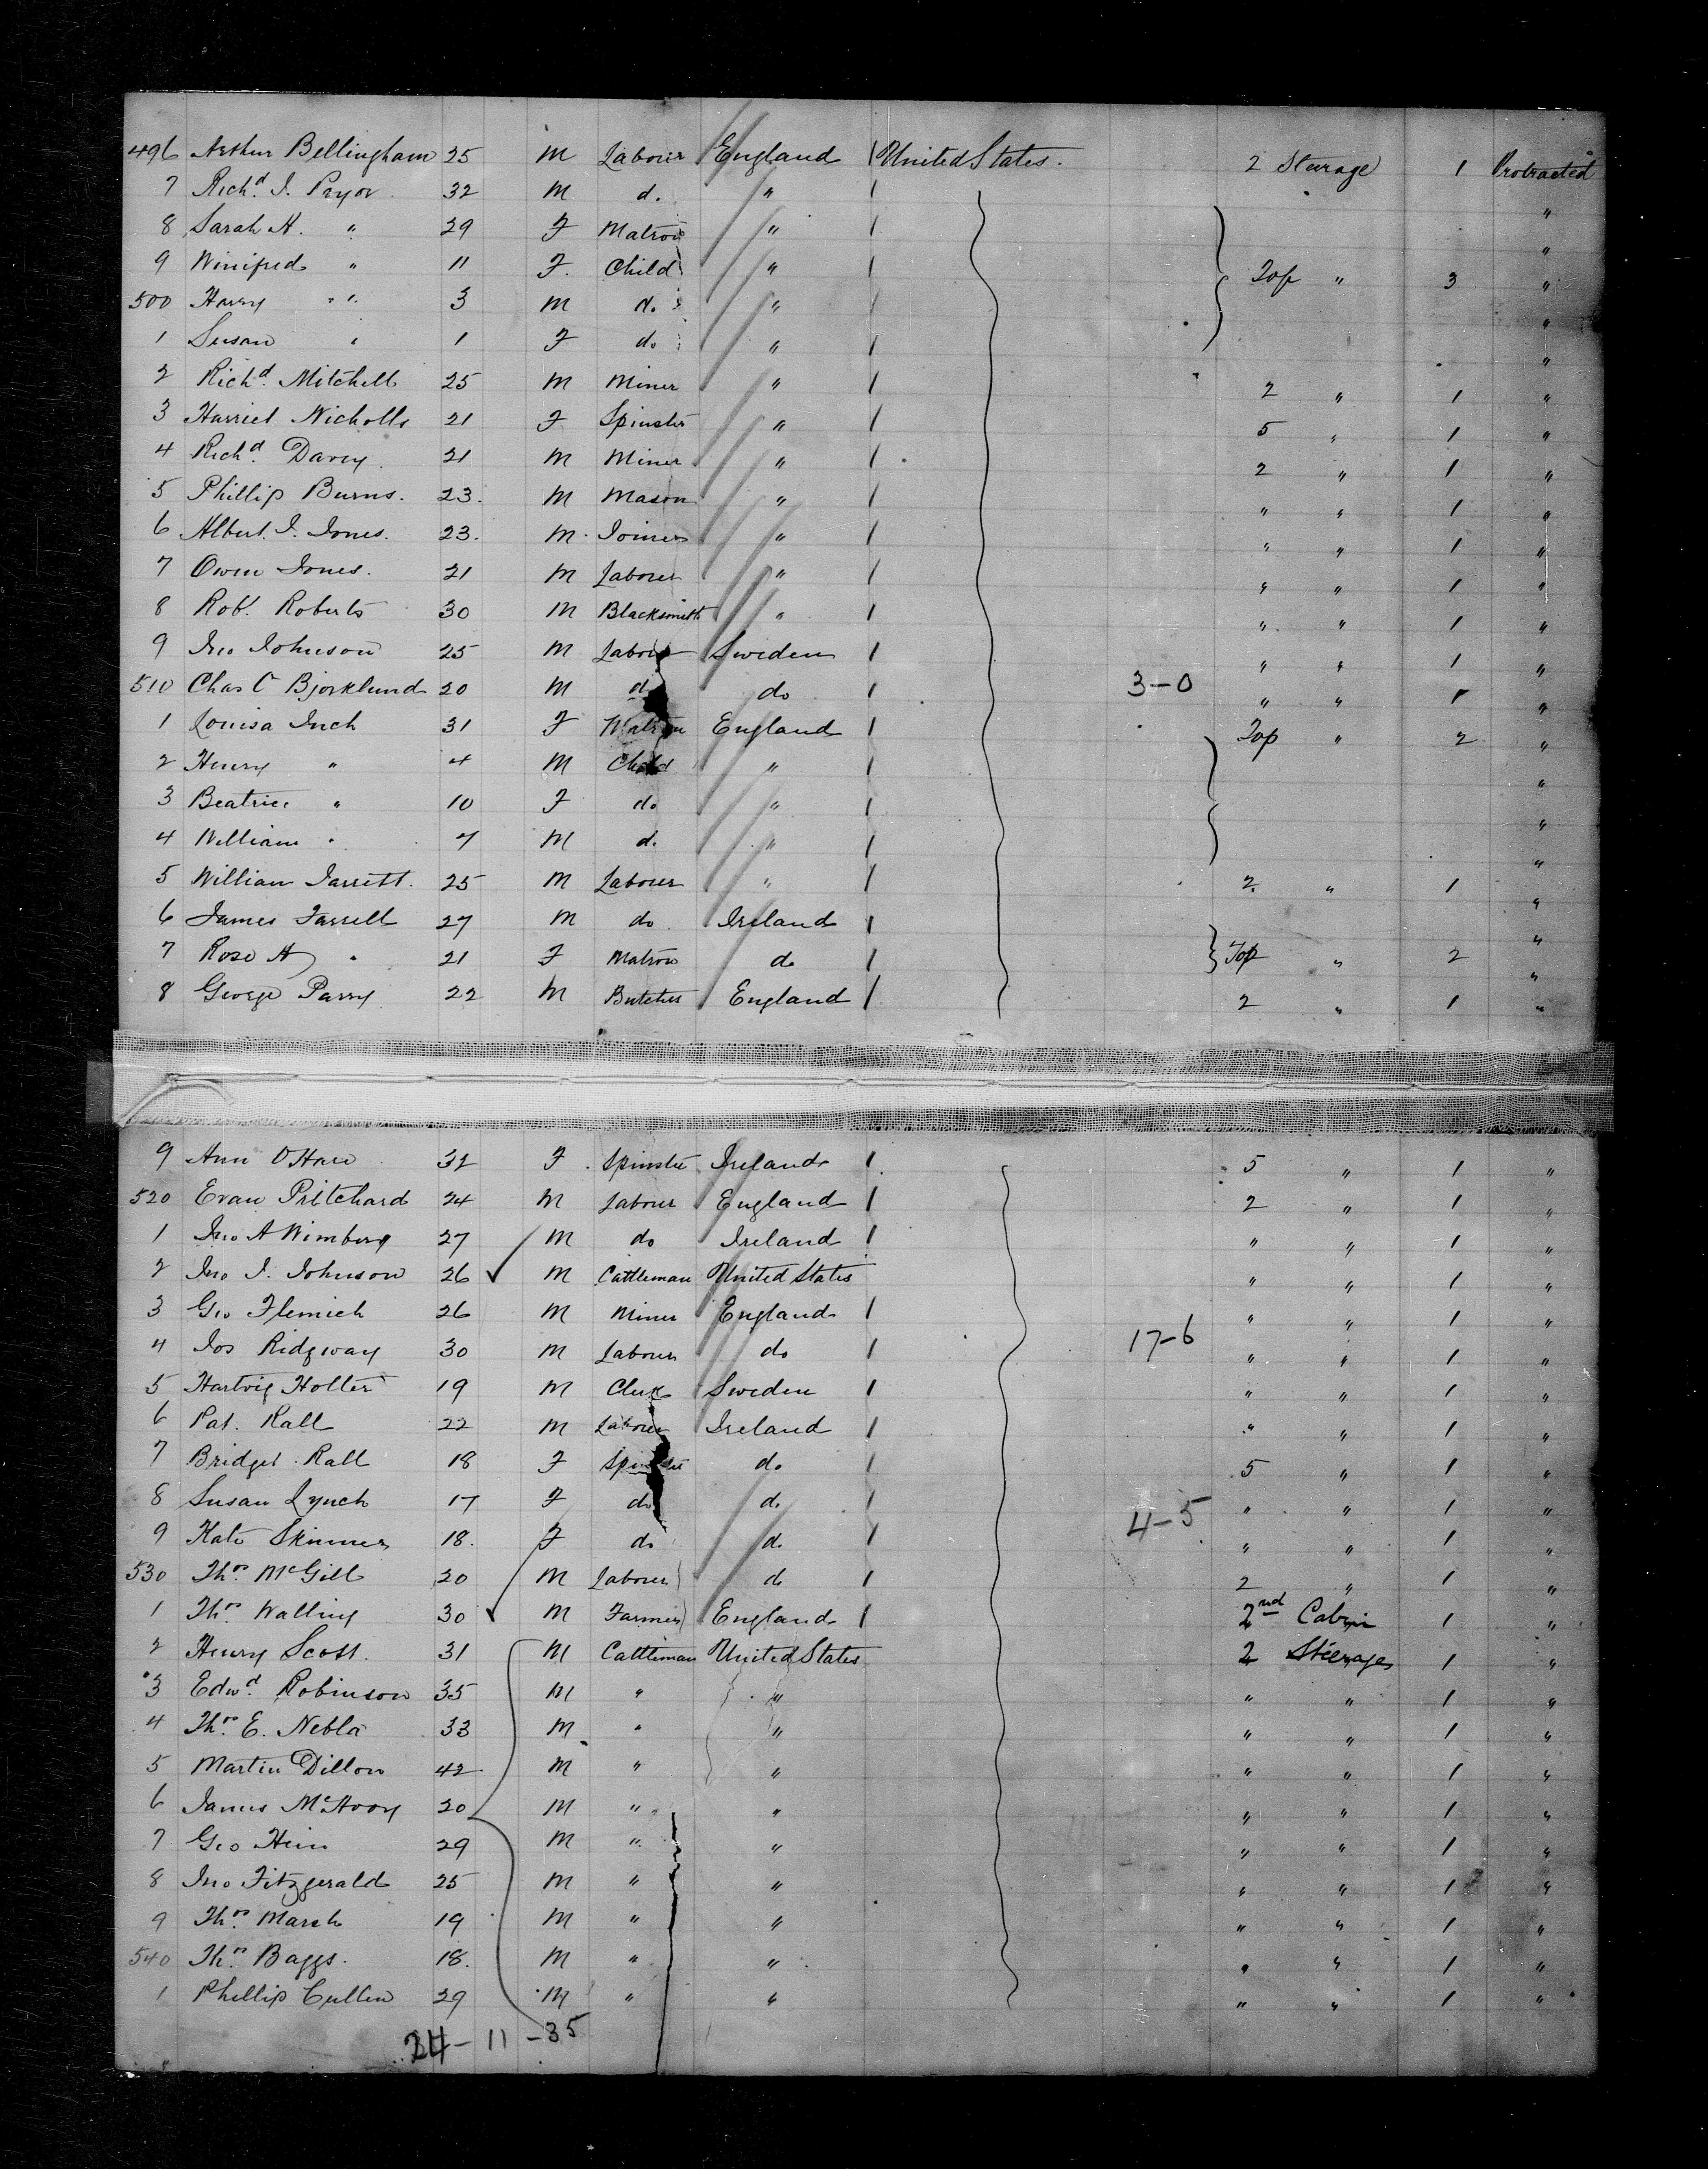 496 Arthur Bellingham 25 M Labourer England 1 United States. 2 Steerage 1 Protracted
7 Richd. J. Pryor 32 M do. " 1 "
8 Sarah A. " 29 F Matron " 1 "
9 Winifred " 11 F. Child " 1 Top " 3 "
500 Harry " 3 M do. " 1 "
1 Susan " 1 F do " 1 "
2 Richd. Mitchell 25 M Miner " 1 2 " 1 "
3 Harriet Nicholls 21 F Spinster " 1 5 " 1 "
4 Richd. Davey. 21 M Miner " 1 2 " 1 "
5 Phillip Burns. 23. M Mason " 1 " " 1 "
6 Albert. J. Jones. 23. M. Joiner " 1 " " 1 "
7 Owen Jones. 21 M Labourer " 1 " " 1 "
8 Robt. Roberts 30 M Blacksmith " 1 " " 1 "
9 Jno Johnson 25 M Labourer Sweden 1 " " 1 "
510 Chas C Bjorklund 20 M do do 1 3-0 " " 1 "
1 Louisa Inch 31 F Matron England 1 Top " 2 "
2 Henry " 4 M Child " 1 "
3 Beatrice " 10 F do " 1 "
4 William " 7 M do. " 1 "
5 William Jarrett. 25 M Labourer " 1 2 " 1 "
6 James Farrell 27 M do Ireland 1 "
7 Rose A " 21 F Matron do 1 Top " 2 "
8 George Parry 22 M Butcher England 1 2 " 1 "
9 Ann O'Hare 32 F. Spinster Ireland 1 5 " 1 "
520 Evan Pritchard 24 M Labourer England 1 2 " 1 "
1 Jno A 27 M do Ireland 1 " " 1 "
2 Jno J. Johnson 26 M Cattleman United States " " 1 "
3 Geo Flemich 26 M Miner England 1 " " 1 "
4 Jos Ridgway 30 M Labourer do 1 17-6 " " 1 "
5 Hartvig Holter 19 M Clerk Sweden 1 " " 1 "
6 Pat. Rall 22 M Labourer Ireland 1 " " 1 "
7 Bridget Rall 18 F Spinster do 1 5 " 1 "
8 Susan Lynch 17 F do do 1 4-5 " " 1 "
9 Kate Skinner 18. F do do 1 " " 1 "
530 Thos. McGill 20 M Labourer do 1 2 " 1 "
1 Thos. Walling 30 M Farmer England 1 2nd Cabin 1 "
2 Henry Scott. 31 M Cattleman United States 2 Steerage 1 "
3 Edwd. Robinson 35 M " " " " 1 "
4 Thos. E. Nebla 33 M " " " " 1 "
5 Martin Dillon 42 M " " " " 1 "
6 James McAvoy 20 M " " " " 1 "
7 Geo Hein 29 M " " " " 1 "
8 Jno Fitzgerald 25 M " " " " 1 "
9 Thos. March 19 M " " " " 1 "
540 Thos. Baggs. 18. M " " " " 1 "
1 Phillip Cullen 29 M " " " " 1 "
24-11-35